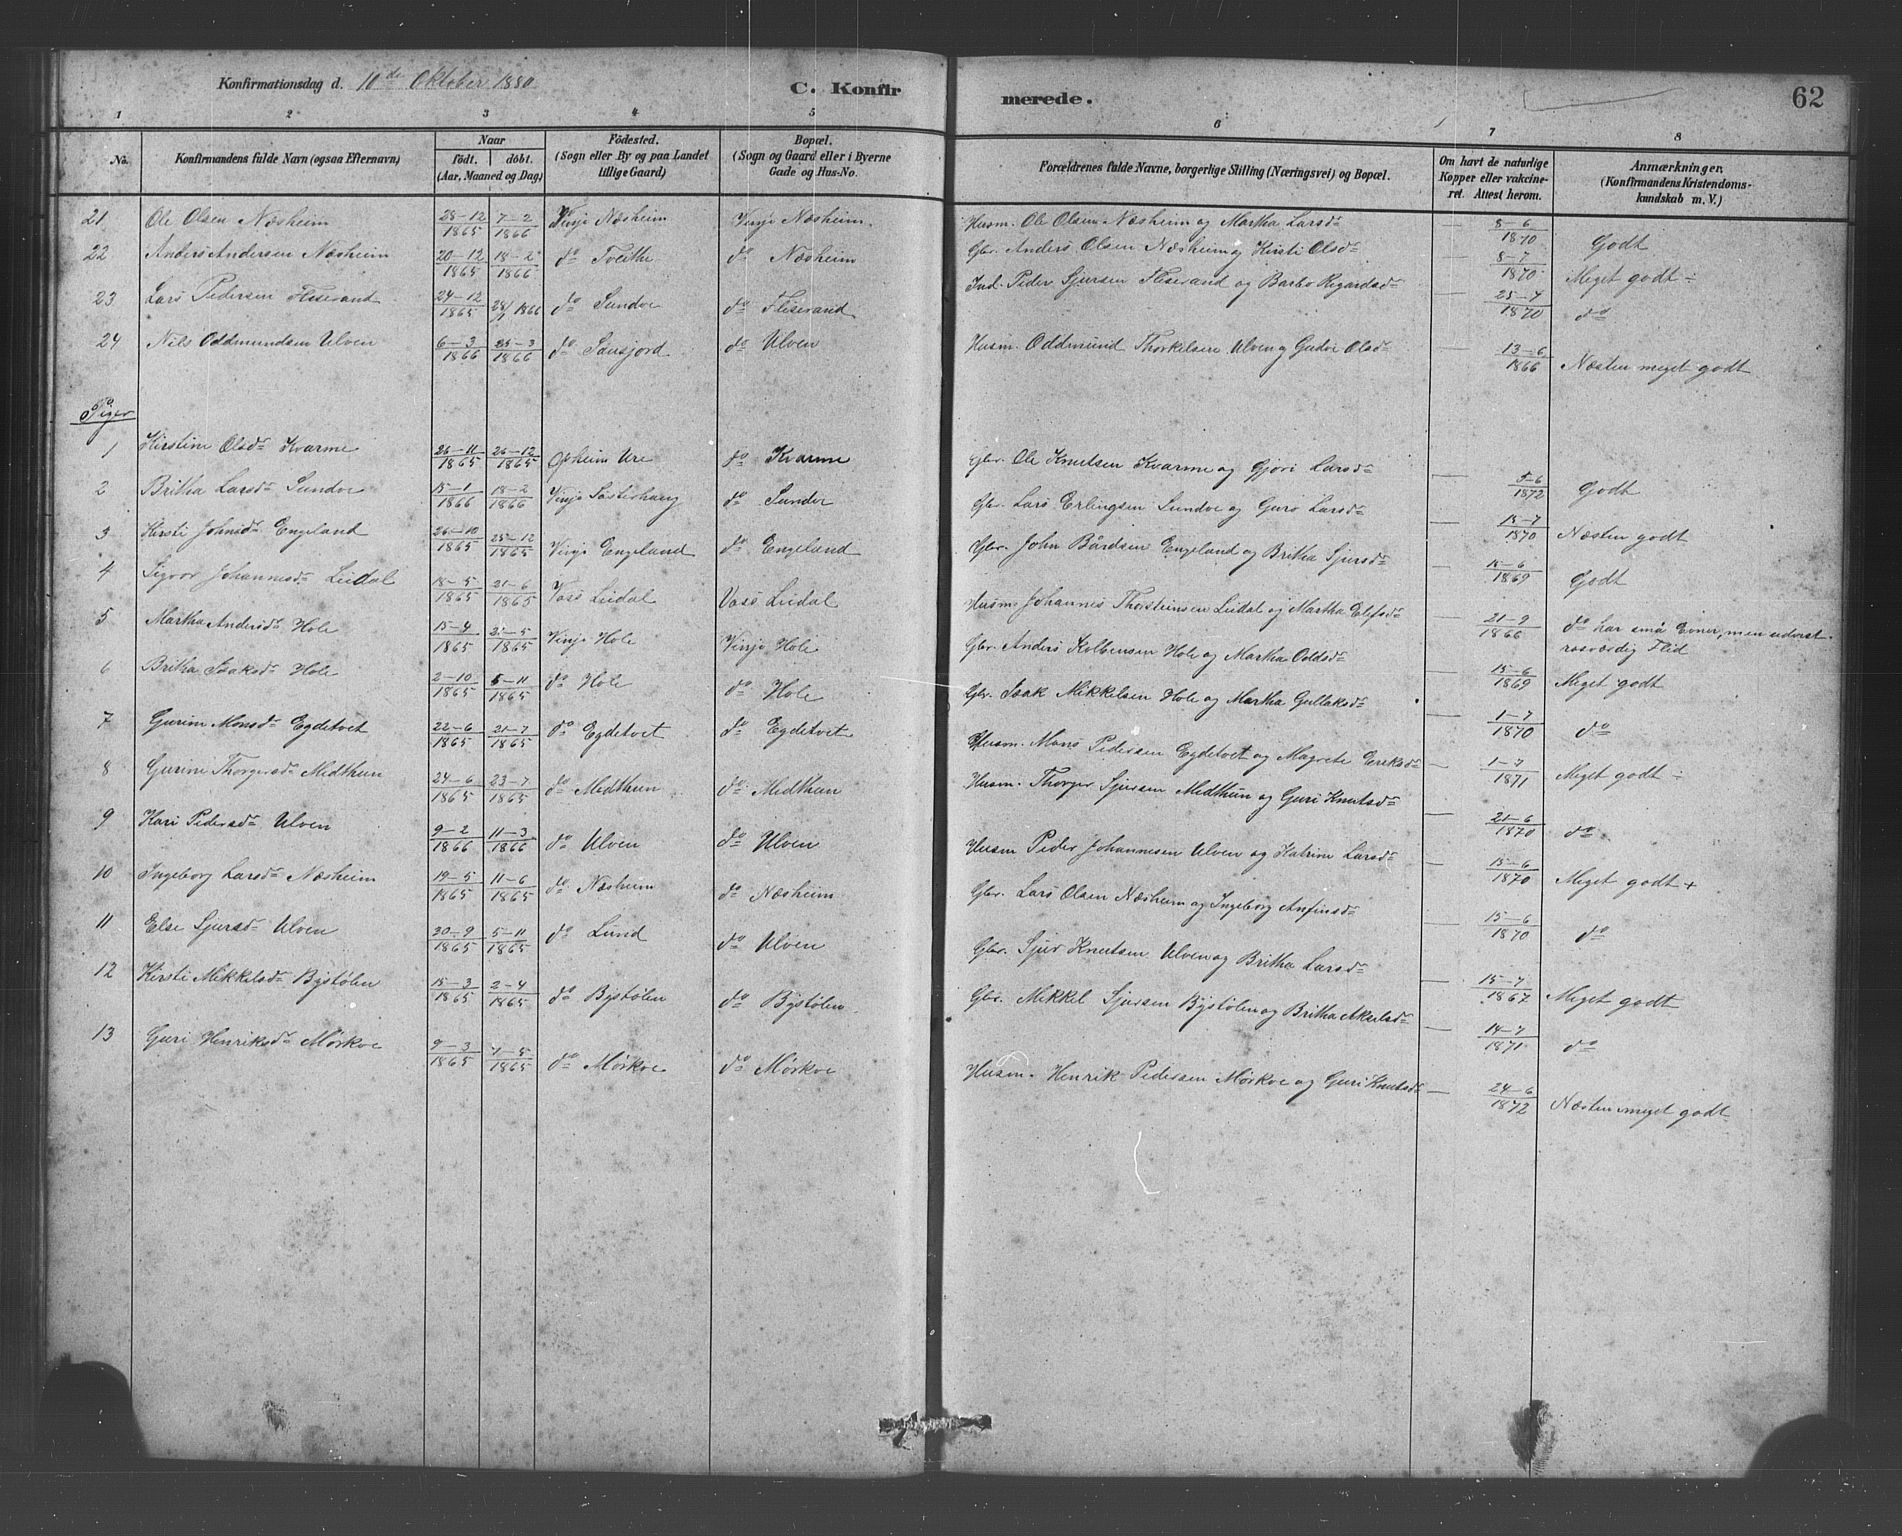 Konfirmationsdag d. 10de Oktober 1880. C. Konfir
merede. 62
1 2 3 4 5 6 7 8
No. Konfirmandens fulde Navn (ogsaa Efternavn) Naar født. døbt. (Aar, Maaned og Dag) Födested. (Sogn eller By og paa Landet tillige Gaard) Bopæl. (Sogn og Gaard eller i Byerne Gade og Hus-No. Forældrenes fulde Navne, borgerlige Stilling (Næringsvei) og Bopæl. Om havt de naturlige Kopper eller vakcineret. Attest herom. Anmærkninger. (Konfirmandens Kristendomskundskab m. V.)
21 Ole Olsen Næsheim 28-12 1865 7-2 1866 Vinje Næsheim Vinje Næsheim. Husm. Ole Olsen Næsheim og Martha Larsdr — 8-6 1870 Godt
22 Anders Andersen Næsheim 20-12 1865 18-2 1866 do Tveithe do Næsheim Gbr. Anders Olsen Næsheim og Kirsti Olsdr — 8-7 1870 Meget godt ÷
23 Lars Pedersen Fliserand 24-12 1865 28/1 1866 do Sundve do Fliserand Ind. Peder Sjursen Fliserand og Barbo Rigardsdr — 25-4 1870 do
24 Nils Oddmundsen Ulven 6-3 1866 25-3 1866 do Sausjord do Ulven Husm. Oddmund Thorkelsen Ulven og Gudve Olsdr — 13-6 1866 Næsten meget godt
Piger
1 Kirstine Olsdr Kvarme 26-11 1865 26-12 1865 Opheim Ure do Kvarme Gbr. Ole Knutsen Kvarme og Gjøri Larsdr — 5-6 1872 Godt
2 Britha Larsdr Sundve 15-1 1866 18-2 1866 Vinje Sæsterhaug do Sundve Gbr. Lars Erlingsen Sundve og Guro Larsdr — 18-7 1870 Næsten godt
3 Kirsti Johnsdr Engeland 26-10 1865 25-12 1865 Vinje Engeland do Engeland Gbr. John Bårdsen Engeland og Britha Sjursdr — 15-6 1869 Godt
4 Sigvor Johannesdr Lidal 18-5 1865 21-6 1865 Voss Lidal Voss Lidal Husm. Johannes Thorsteinsen Lidal og Martha Elefsdr — 21-9 1866 do har små Evner, men udvist rosværdig Flid
5 Martha Andersdr Hole 15-4 1865 21-5 1865 Vinje Hole Vinje Hole Gbr. Anders Kolbensen Hole og Martha Oddsdr — 15-6 1869 Meget godt
6 Britha Isaksdr Hole 2-10 1865 5-11 1865 do Hole do Hole Gbr. Isak Mikkelsen Hole og Martha Gullaksdr — 1-7 1870 do
7 Gurine Monsdr Egdetvet 22-6 1865 21-7 1865 do Egdetvet do Egdetvet Husm. Mons Pedersen Egdetvet og Magrete Eriksdr — 1-7 1871 Meget godt ÷
8 Gurine Thorgersdr Midthun 24-6 1865 23-7 1865 do Midthun do Midthun Husm. Thorger Sjursen Midthun og Guri Knutsdr — 21-6 1870 do
9 Kari Pedersdr Ulven 9-2 1866 11-3 1866 do Ulven do Ulven Husm Peder Johannesen Ulven og Katrine Larsdr — 15-6 1870 Meget godt +
10 Ingeborg Larsdr Næsheim 19-5 1865 11-6 1865 do Næsheim do Næsheim Gbr. Lars Olsen Næsheim og Ingeborg Anfinsdr — 15-6 1870 do
11 Else Sjursdr Ulven 20-9 1865 5-11 1865 do Lund do Ulven Gbr. Sjur Knutsen Ulven og Britha Larsdr — 15-7 1867 Meget godt
12 Kirsti Mikkelsdr Bystølen 15-3 1865 2-4 1865 do Bystølen do Bystølen Gbr. Mikkel Sjursen Bystølen og Britha Akselsdr — 14-7 1871 do
13 Guri Henriksdr Mørkve 9-3 1865 7-5 1865 do Mørkve do Mørkve Husm. Henrik Pedersen Mørkve og Guri Knutsdr — 24-6 1872 Næsten meget godt